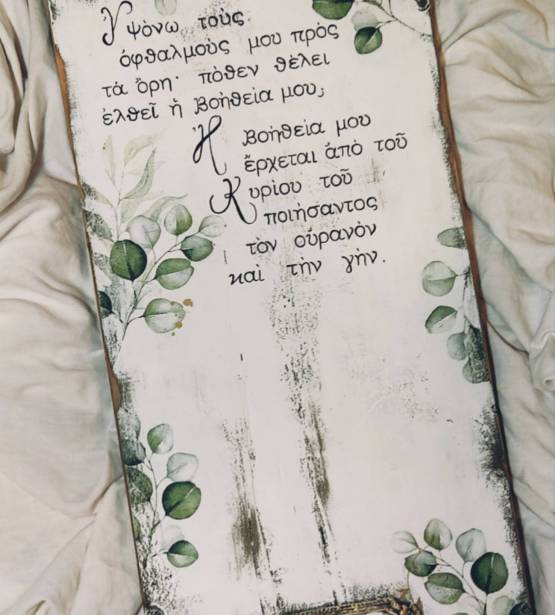 Ὑψόνω τοὺς
ὀφθαλμοὺς μου πρὸς
τὰ ὄρη· πόθεν θέλει
ἐλθεῖ ἡ βοήθεία μου;
Ἡ βοήθεία μου
ἔρχεται ἀπὸ τοῦ
Κυρίου τοῦ
ποιήσαντος
τὸν οὐρανὸν
καὶ τὴν γήν.